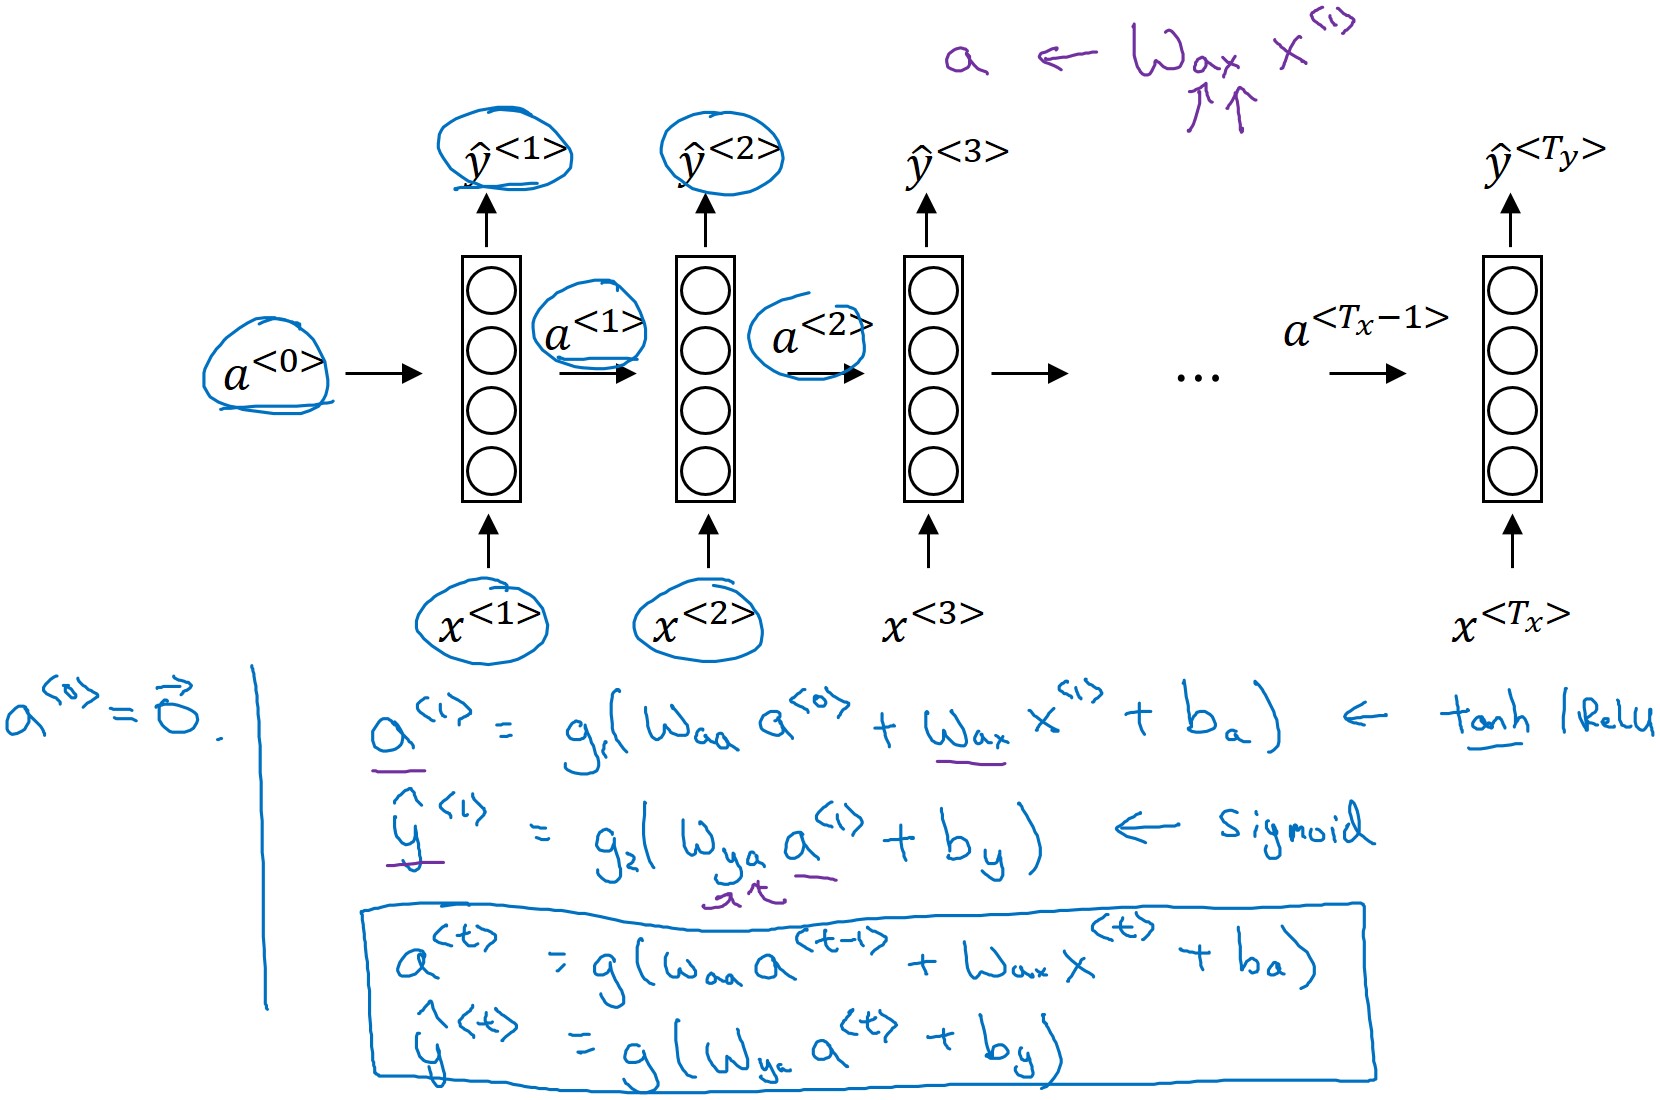 a ← Wax x<1>
ŷ<1> ŷ<2> ŷ<3> ŷ<Ty>
a<0> a<1> a<2> ... a<Tx−1>
x<1> x<2> x<3> x<Tx>
a<0> = 0⃗.
a<1> = g₁(Waa a<0> + Wax x<1> + ba) ← tanh | ReLU
ŷ<1> = g₂(Wya a<1> + by) ← sigmoid
a<t> = g(Waa a<t-1> + Wax x<t> + ba)
ŷ<t> = g(Wya a<t> + by)